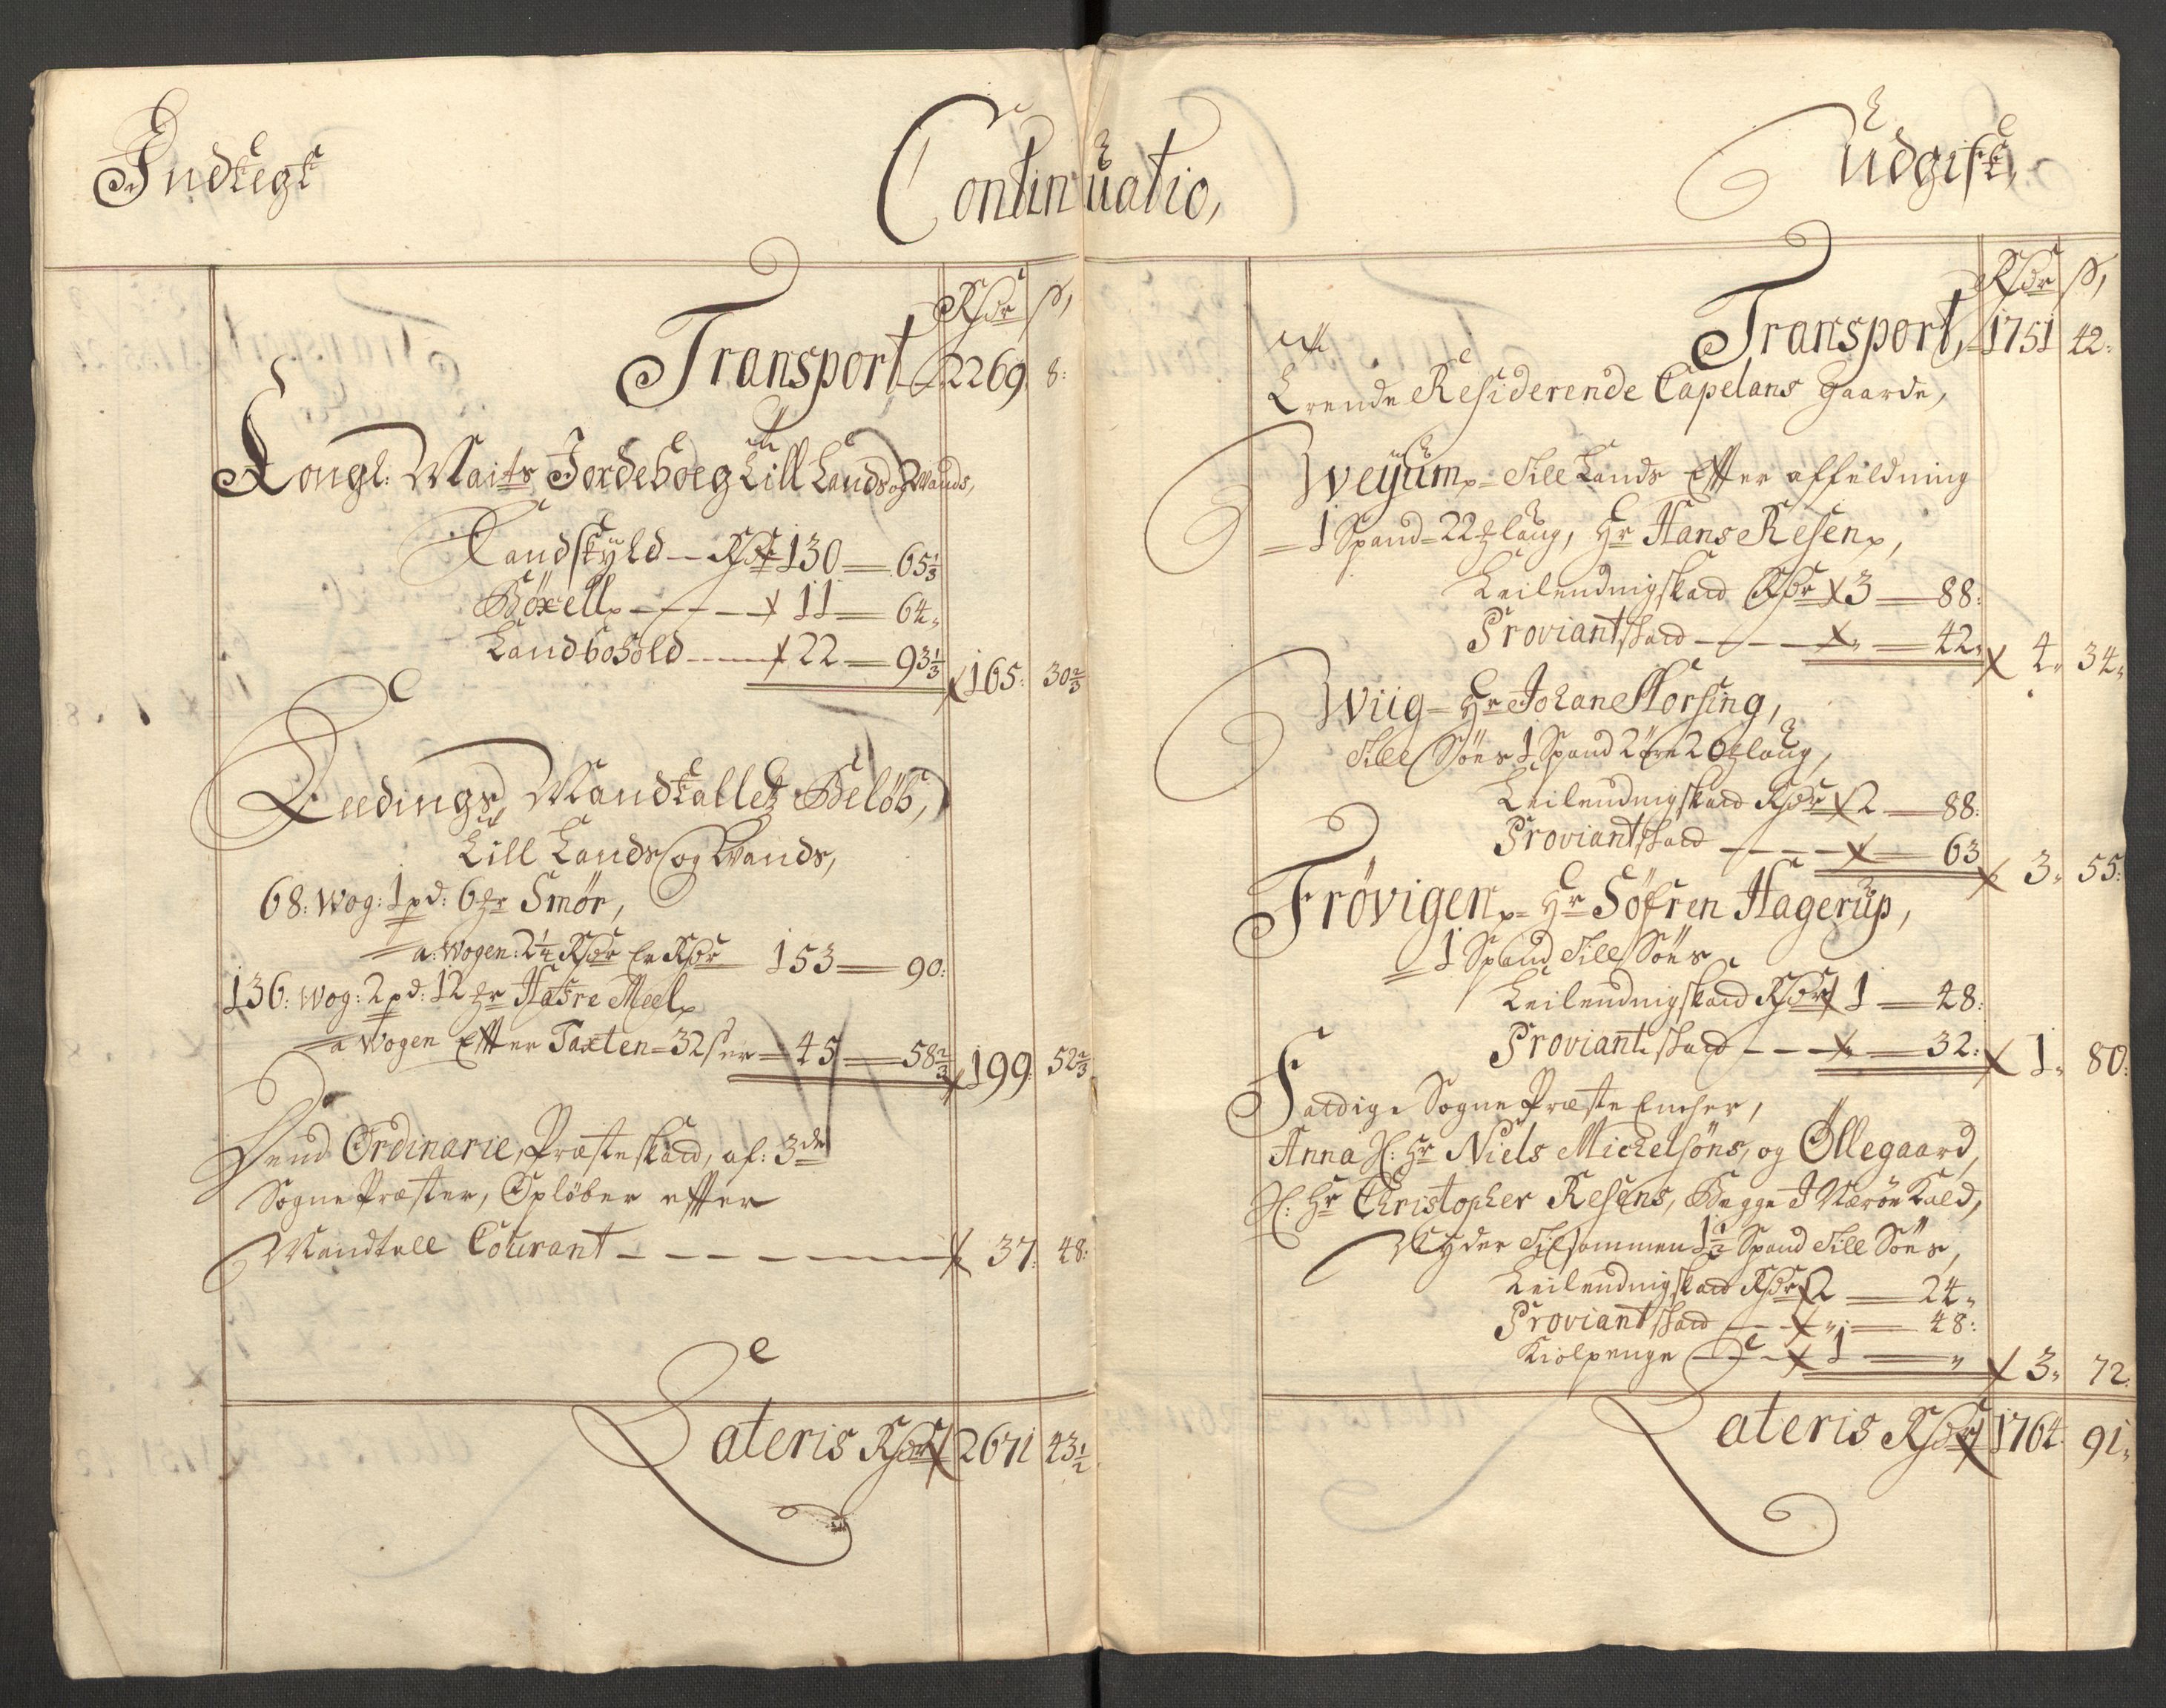 Indtegt
Continuatio,
Rdr ß,
Transport 2269. 8:
Kongl: Maits Jordeboeg till Lands og Wands,
Landskyld — Rdr 130 — 65 1/3
Böxell — 11 — 64
Landbohold — 22 — 93 1/3
165: 30 2/3
Leedings Mandtallets Beløb,
till Lands og Wands,
68: Wog: 1 pd: 6 Smör,
a: Wogen: 2 1/4 Rdr Er Rdr 153 — 90:
136: Wog: 2 pd: 12 Hafre Meel
a Wogen Effter Taxten 32 ß er 45 — 58 2/3
199: 52 2/3
Dend Ordinarie, Præsteskatt, af: 3de
Sogne Præster, Opløber effter
Mandtall Courant — 37: 48:
Lateris Rdr 2671 43 1/2
Udgift,
Rdr ß,
Transport, 1751 42:
Residerende Capelans Gaarde,
Weyum Till Lands Effter affeldning
1 Spand 22 laug, Hr Hans Resen,
Leilendingskatt Rdr 3 — 88:
Proviantskatt — 42
4 34
Wiig Hr Johan Horsing,
Till Söes 1 Spand 2 öre 20 laug,
Leilendingskatt Rdr 2 — 88:
Proviantskatt — 63
3 55:
Frövigen Hr Söfren Hagerup,
1 Spand Till Söes
Leilendingskatt Rdr 1 — 48:
Proviantskatt — 32:
1 80:
Fattige Sogne Præste Encher,
Anna Sl: Hr Niels Michelsöns, og Øllegaard,
Sl: Hr Christopher Resens, Begge I Nærøe Kald,
Nyder Tilsammen 1 1/2 Spand Till Söes,
Leilendingskatt Rdr 2 — 24
Proviantskatt — 48:
Kiolpenge — 1 —
3 72:
Lateris Rdr 1764 91